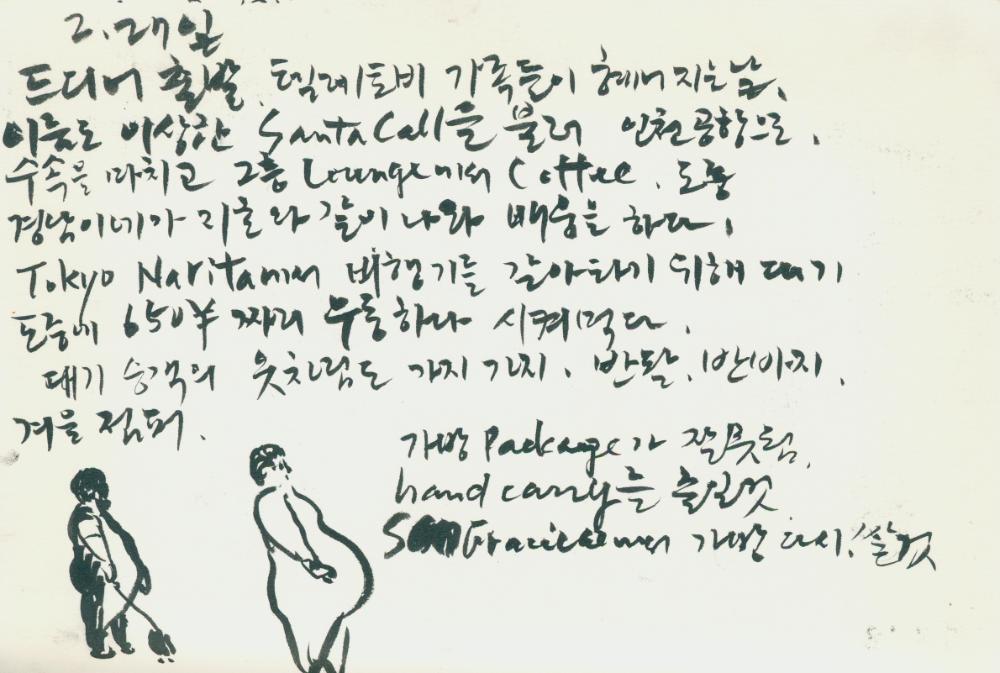 2. 27일
드디어 출발. 텔레토비 가족들이 헤어지는 날.
이름도 이상한 Santa Call을 불러 인천공항으로.
수속을 마치고 2층 Lounge에서 Coffee. 도중
경남이네가 지율와 같이 나와 배웅을 하다.
Tokyo Narita에서 비행기를 갈아타기 위해 대기
도중에 650¥ 짜리 우동하나 시켜먹다.
대기 승객의 옷차림도 가지가지. 반팔, 반바지,
겨울 점퍼.
가방 Package가 잘못됨.
hand carry를 줄일것
에서 가방 다시 쌀것